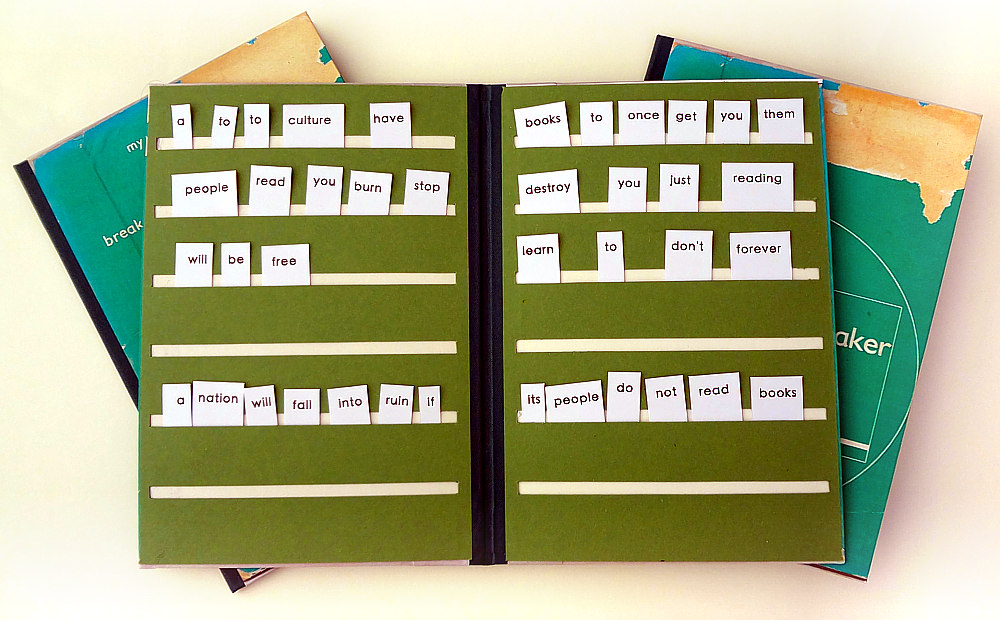 a to to culture have
people read you burn stop
will be free
a nation will fall into ruin if
books to once get you them
destroy you just reading
learn to don't forever
its people do not read books
my
break
aker